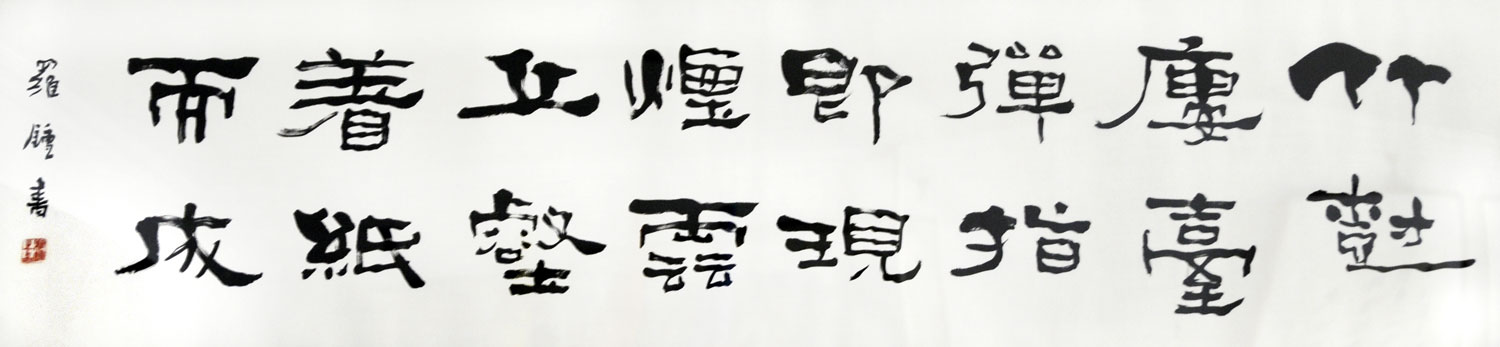 竹尌
廔臺
彈指
即現
煙雲
丘壑
着紙
而成
羅鍾書